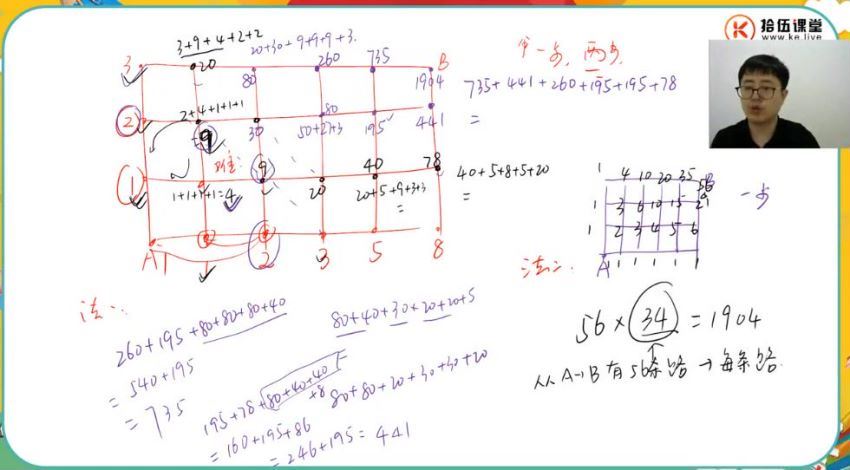 拾伍课堂
www.ke.live
3+9+4+2+2
20+30+9+9+9+3.
走一步, 两步
3
20
80
260
735
B
1904
735+441+260+195+195+78
=
2+4+1+1+1
2
9
30
80
50+27+3
195
441
1
1+1+1+1=4
9
20
40
20+5+9+3+3
=
78
40+5+8+5+20
=
A
1
1
2
3
5
8
1 4 10 20 35 56 B
1 3 6 10 15 21
1 2 3 4 5 6
A 1 1 1 1 1
一步
法一:
法二:
260+195+80+80+80+40
=540+195
=735
80+40+30+20+20+5
195+78+80+40+40
+8
80+80+20+30+30+20
=160+195+86
=246+195=441
56×34=1904
从A→B有56条路→每条路